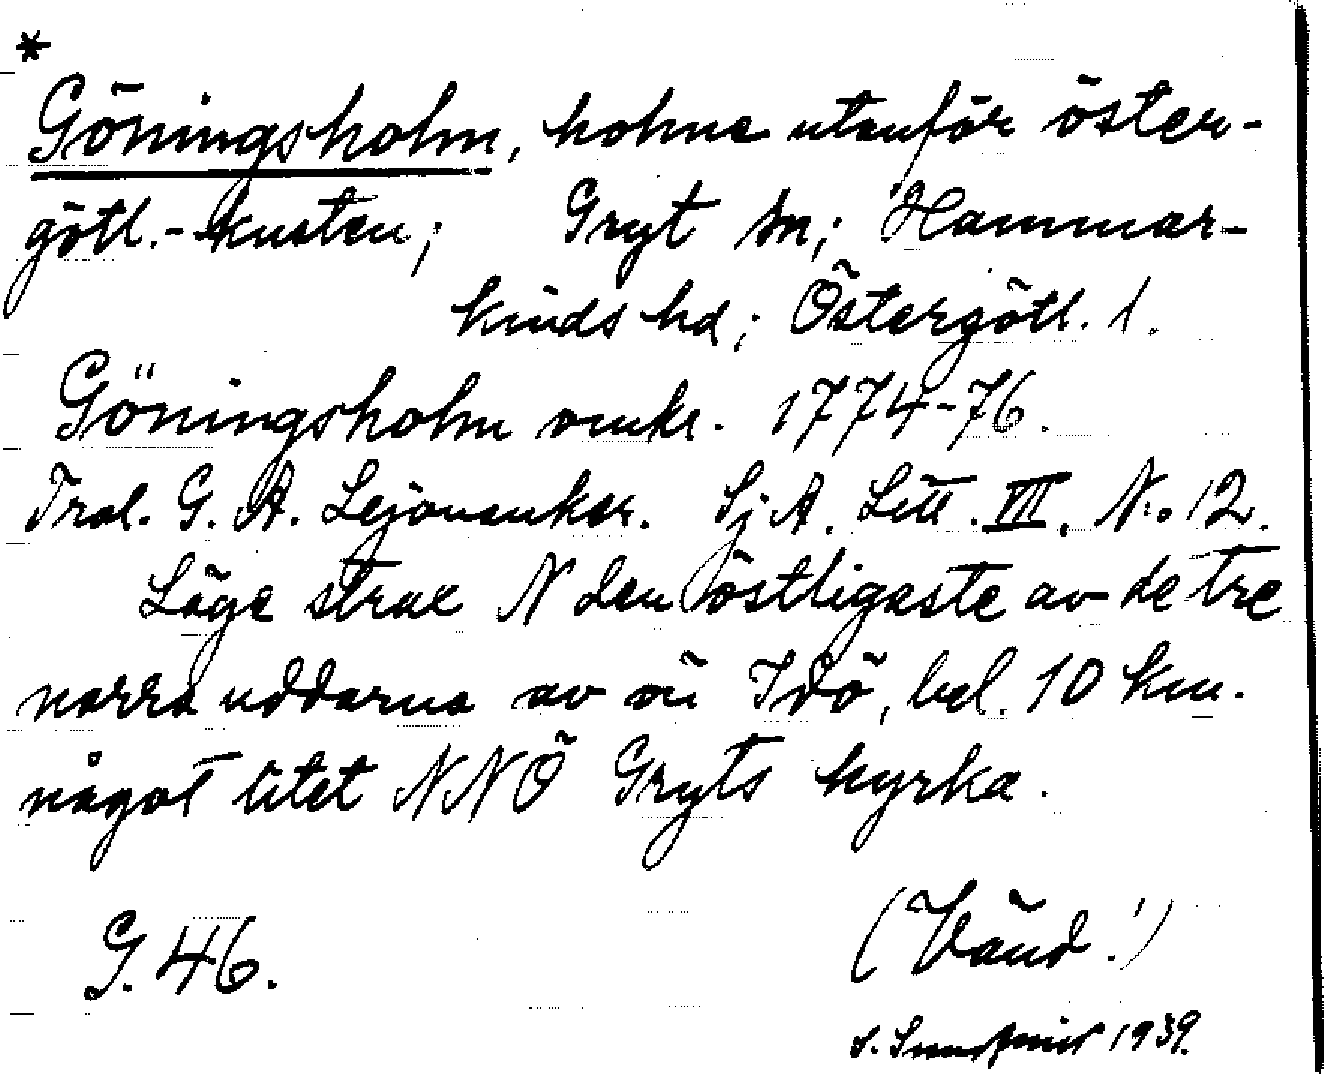 *
Göningsholm, holme utanför öster-
götl.-kusten; Gryt sn; Hammar-
kinds hd; Östergötl. l.
Göningsholm omkr. 1774-76.
Tral. G. A. Lejonanker. Sj A. Litt. VII. No 12.
Läge strax N den östligaste av de tre
norra uddarna av ön Idö, bel. 10 km.
något litet NNÖ Gryts kyrka.
G. 46.
(Vänd!)
S. 1939.